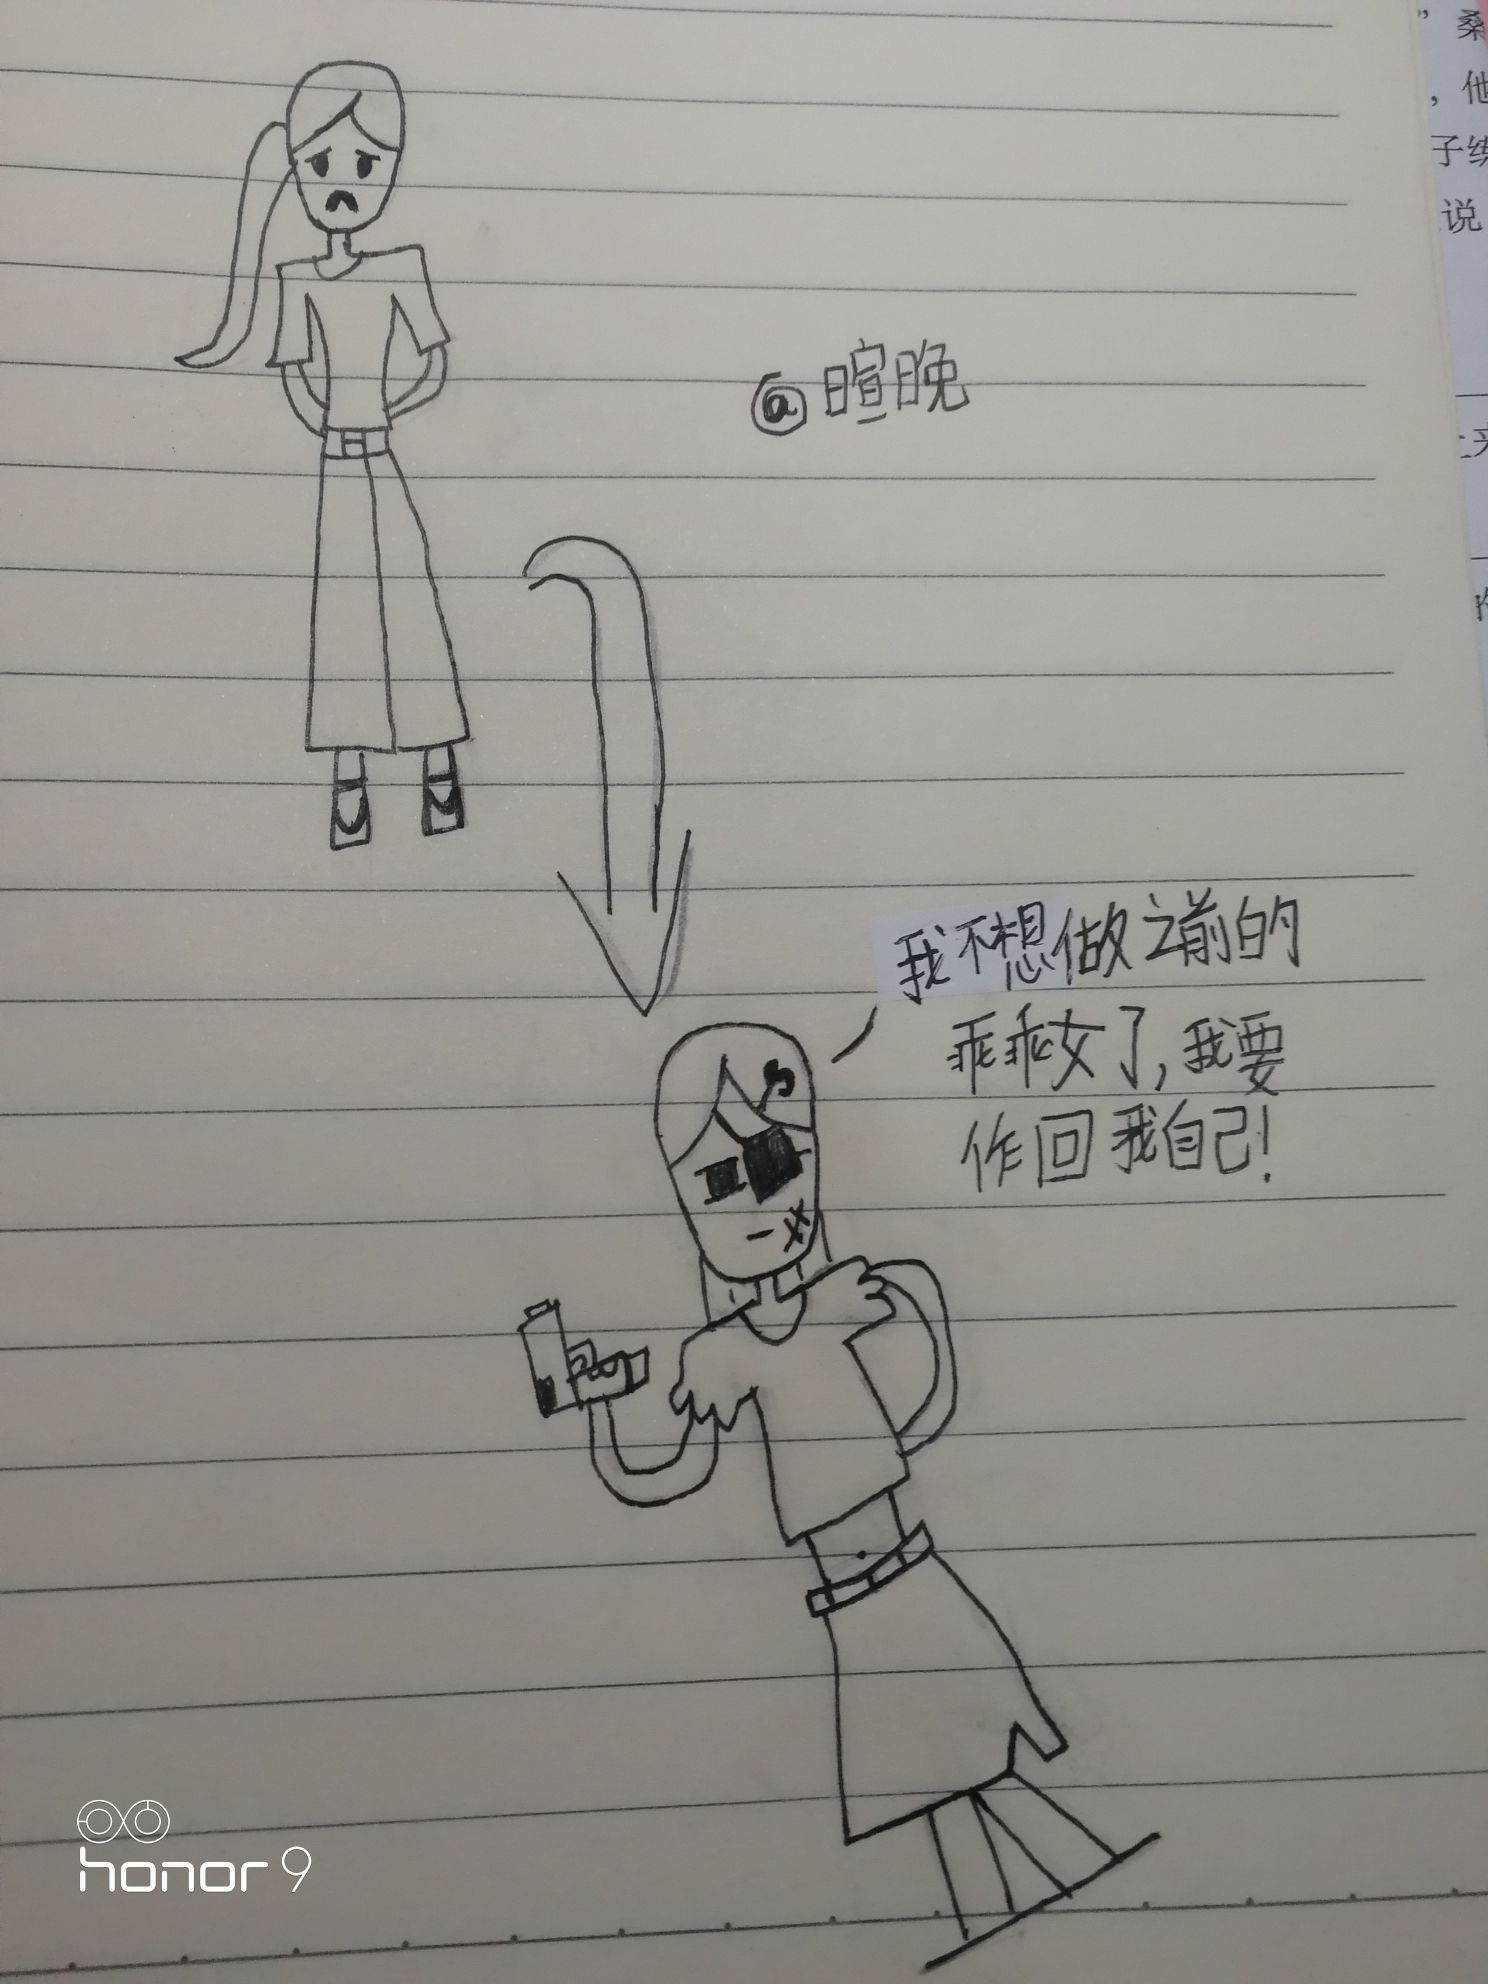 @暄晚
我不想做之前的
乖乖女了,我要
作回我自己!
honor 9
” 桑
，他
说